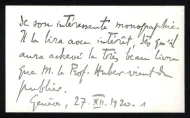 de son intéressante monographie.
Il la lira avec intérêt, dès qu'il
aura achevé le très beau livre
que M. le Prof. Huber vient de
publier.
Genève, 27 XII. 1920.